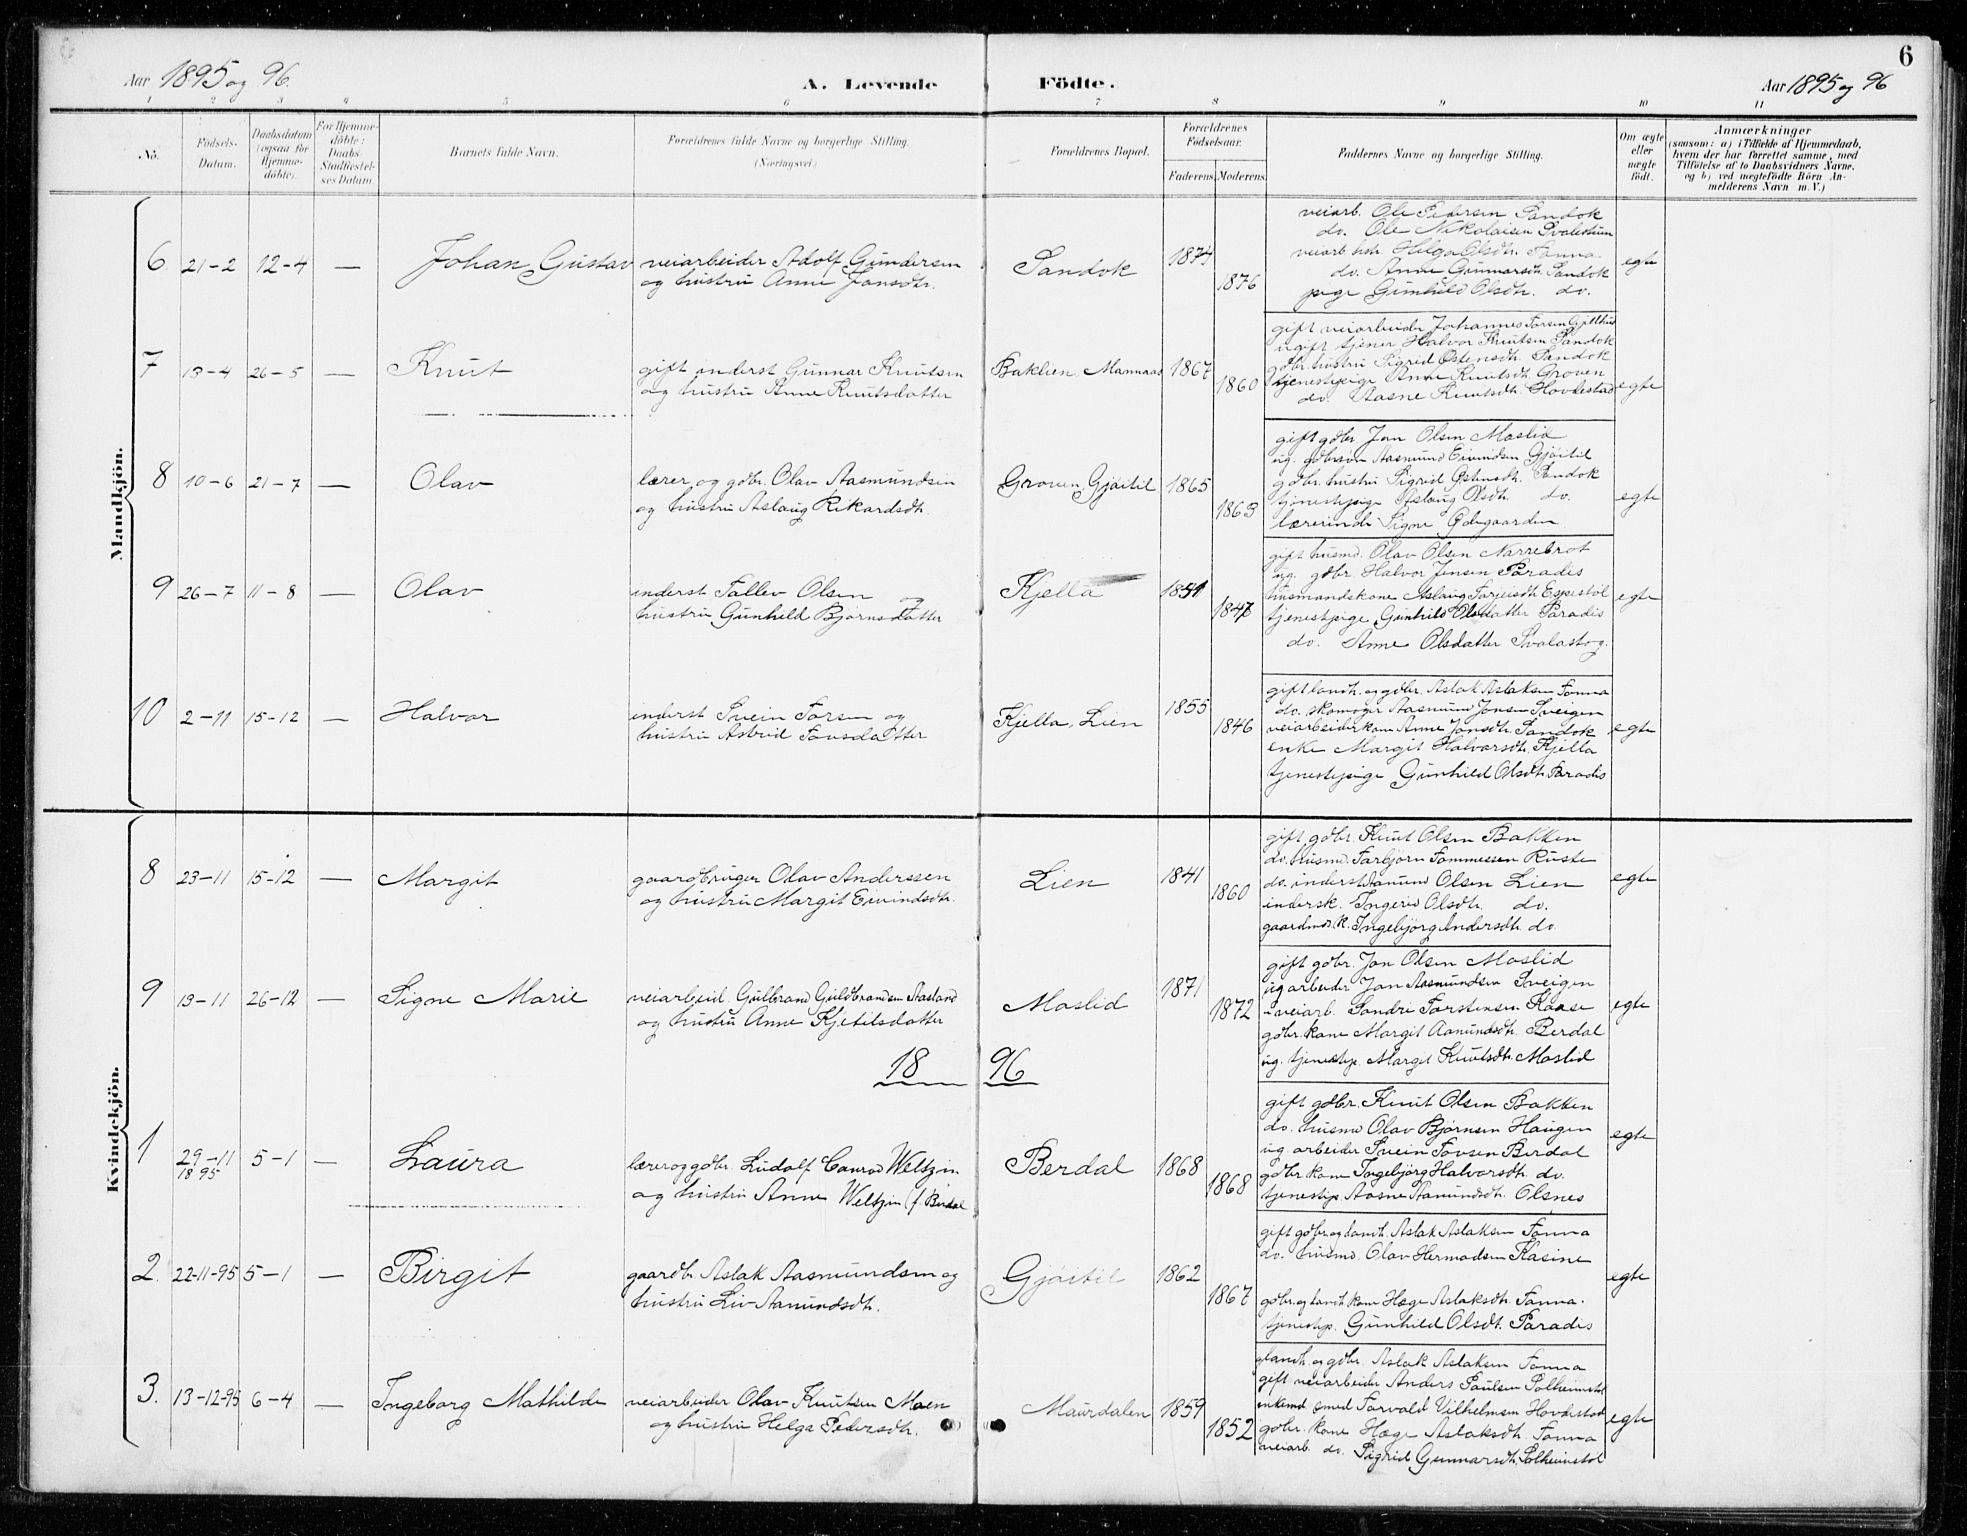 6
Aar 1895 og 96.
A. Levende Födte.
Aar 1895 og 96
1 2 3 4 5 6 7 8 9 10 11
No.
Födsels-
Datum.
Daabsdatum
(ogsaa for
Hjemme-
döbte).
For Hjemme-
döbte:
Daabs-
Stadfæstel-
ses Datum.
Barnets fulde Navn.
Forældrenes fulde Navne og borgerlige Stilling.
(Næringsvei.)
Forældrenes Bopæl.
Forældrenes
Födselsaar.
Faderens. Moderens.
Faddernes Navne og borgerlige Stilling.
Om ægte
eller
uægte
födt.
Anmærkninger
(saasom: a) i Tilfælde af Hjemmedaab,
hvem der har forrettet samme, med
Tilföielse af to Daabsvidners Navne,
og b) ved uegtefödte Börn An-
melderens Navn m. V.)
Mandkjön.
6 21-2 12-4 — Johan Gustav
veiarbeider Adolf Gundersen
og hustru Anne Jonsdtr.
Sandok 1874 1876
veiarb. Ole Pedersen Sandok
do. Ole Nikolaisen
veiarb. hstr. Helga Olsdtr. Tonna.
do. Anne Gunnarsdtr. Sandok
pige Gunhild Olsdtr. do.
egte
7 13-4 26-5 — Knut
gift inderst Gunnar Knutsen
og hustru Anne Knutsdatter
Baklien, Mannaas 1867 1860
gift veiarbeider Johannes Torsen
ugift tjener Halvor Knutsen Sandok
gdbr. hustru Sigrid Østensdtr. Sandok
tjenestpige Anne Knutsdtr. Groven
do. Aasne Knutsdtr. Hovdestad
egte
8 10-6 21-7 — Olav
lærer og gdbr. Olav Aasmundsen
og hustru Aslaug Rikardsdtr.
Groven, Gjøitil 1865 1863
gift gdbr. Jon Olsen Moslid
ug. gdbrsøn Aasmund Eivindsen Gjøitil
gdbr. hustru Sigrid Østensdtr. Sandok
tjenestpige Aslaug Olsdtr. do.
lærerinde Signe Ødegaarden
egte
9 26-7 11-8 — Olav
inderst Tallev Olsen og
hustru Gunhild Bjørnsdatter
Kjella 1851 1847
gift husmd. Olav Olsen Narrebrot
ug. gdbr. Halvor Jensen Paradis
husmandskone Aslaug Torjusdtr. Espestøl
tjenestpige Gunhild Olsdatter Paradis
do. Anne Olsdatter Svalastog.
egte
10 2-11 15-12 — Halvor
inderst Svein Torsen og
hustru Astrid Tovsdatter
Kjella, Lien 1855 1846
gift landh. og gdbr. Aslak Aslaksen Tonna
do. skomager Aasmund Jonsen Sveigen
veiarbeiderkone Anne Jonsdtr. Sandok
enke Margit Halvorsdtr. Kjella
tjenestpige Gunhild Olsdtr. Paradis
egte
Kvindekjön.
8 23-11 15-12 — Margit
gaardbruger Olav Anderssen
og hustru Margit Eivindsdtr.
Lien 1841 1860
gift gdbr. Knut Olsen Bakken
do. husmd. Torbjørn Tommessen Ruste
do. inderst Aanund Olsen Lien
indersk. Ingerid Olsdtr. do.
gaardmds k. Ingebjørg Andersdtr. do.
egte
9 13-11 26-12 — Signe Marie
veiarbeid. Gulbrand Guldbrandsen Aasland
og hustru Anne Kjetilsdatter
Moslid 1871 1872
gift gdbr. Jon Olsen Moslid
ug arbeider Jon Aasmundsen Sveigen
veiarb. Sondre Torstensen Raase
gdbr. kone Margit Aanundsdtr. Berdal
ug. tjenestp. Margit Knutsdtr. Moslid
egte
18 96
1 29-11 1895 5-1 — Laura
lærer og gdbr. Ludolf Conrad Weltzin
og hustru Anne Weltzin (f. Berdal
Berdal 1868 1868
gift gdbr. Knut Olsen Bakken
do. husmd Olav Bjørnsen Haugen
ug. arbeider Svein Tovsen Berdal
gdbr. kone Ingebjørg Halvorsdtr. do.
tjenestp. Aasne Aanundsdtr. Olsnes
egte
2. 22-11-95 5-1 — Birgit
gaardbr. Aslak Aasmundsen og
hustru Liv Aanundsdtr.
Gjøitil 1862 1867
gift gdbr. og landh. Aslak Aslaksen Tonna
do. husmd. Olav Hermodsen Kasine
gdbr. og landh. kone Hæge Aslaksdtr. Tonna.
tjenestep. Gunhild Olsdt. Paradis
egte
3. 13-12-95 6-4 — Ingeborg Mathilde
veiarbeider Olav Knutsen Moen
og hustru Helga Pedersdtr.
Maurdalen 1859 1852
glandh. og gdbr. Aslak Aslaksen Tonna
gift veiarbeider Anders Paulsen Solheimstøl
enkemd smed Torvald Vilhelmsen Hovdestad
gdbr. kone Hæge Aslaksdtr. Tonna
veiarb. do. Sigrid Gunnarsdtr. Solheimstøl
egte